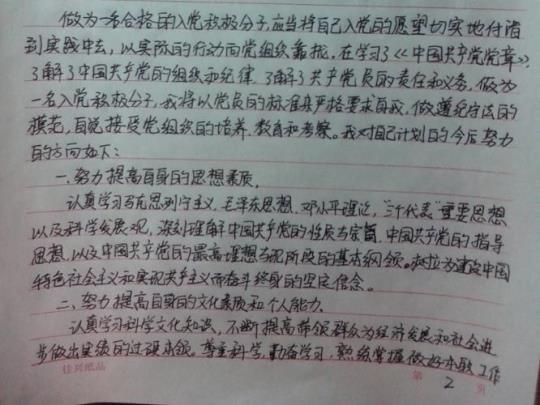 做为一名合格的入党积极分子,应当将自己入党的愿望切实地付诸
到实践中去,以实际的行动向党组织靠拢。在学习了《中国共产党党章》,
了解了中国共产党的组织和纪律,了解了共产党员的责任和义务,做为
一名入党积极分子,我将以党员的标准严格要求自我,做遵纪守法的
模范,自觉接受党组织的培养、教育和考察。我对自己计划的今后努力
的方向如下:
一、努力提高自身的思想素质。
认真学习马克思列宁主义、毛泽东思想、邓小平理论,“三个代表”重要思想
以及科学发展观,深刻理解中国共产党的性质与宗旨、中国共产党的指导
思想,以及中国共产党的最高理想与现阶段的基本纲领。树立为建设中国
特色社会主义和实现共产主义而奋斗终身的坚定信念。
二、努力提高自身的文化素质和个人能力。
认真学习科学文化知识,不断提高带领群众为经济发展和社会进
步做出实绩的过硬本领。尊重科学,勤奋学习,熟练掌握做好本职工作
佳兴纸品 第 2 页